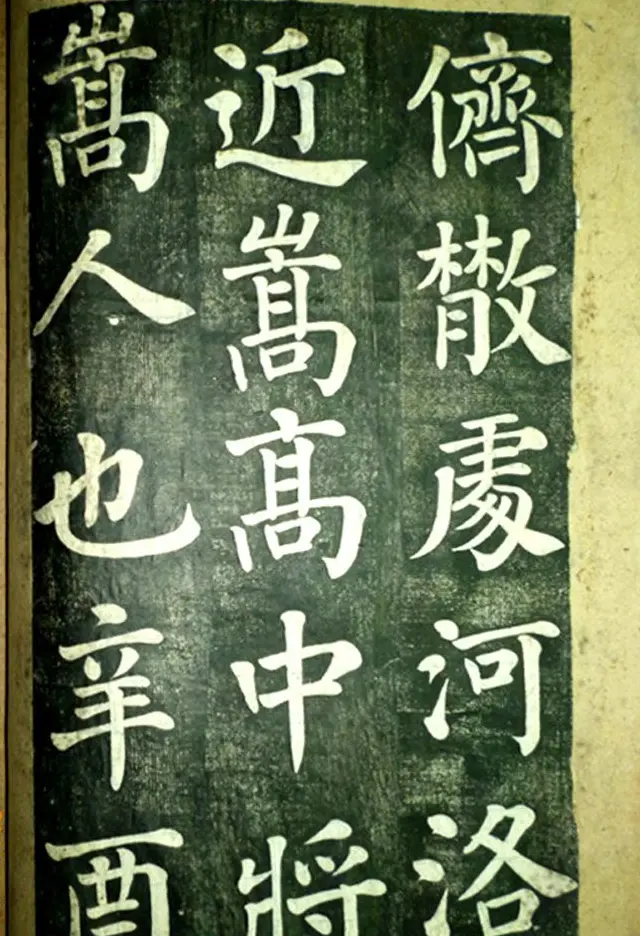 儕㪚處河洛
近嵩髙中將
嵩人也辛酉